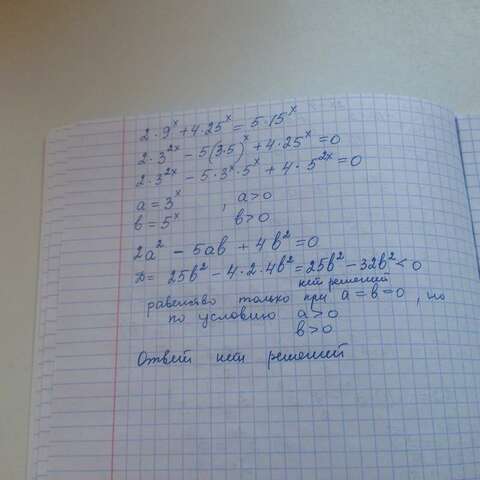 2·9ˣ+4·25ˣ=5·15ˣ
2·3²ˣ-5(3·5)ˣ+4·25ˣ=0
2·3²ˣ-5·3ˣ·5ˣ+4·5²ˣ=0
a=3ˣ, a>0
b=5ˣ b>0
2a²-5ab+4b²=0
D=25b²-4·2·4b²=25b²-32b²<0
нет решений
равенство только при a=b=0, но
по условию a>0
b>0
Ответ нет решений